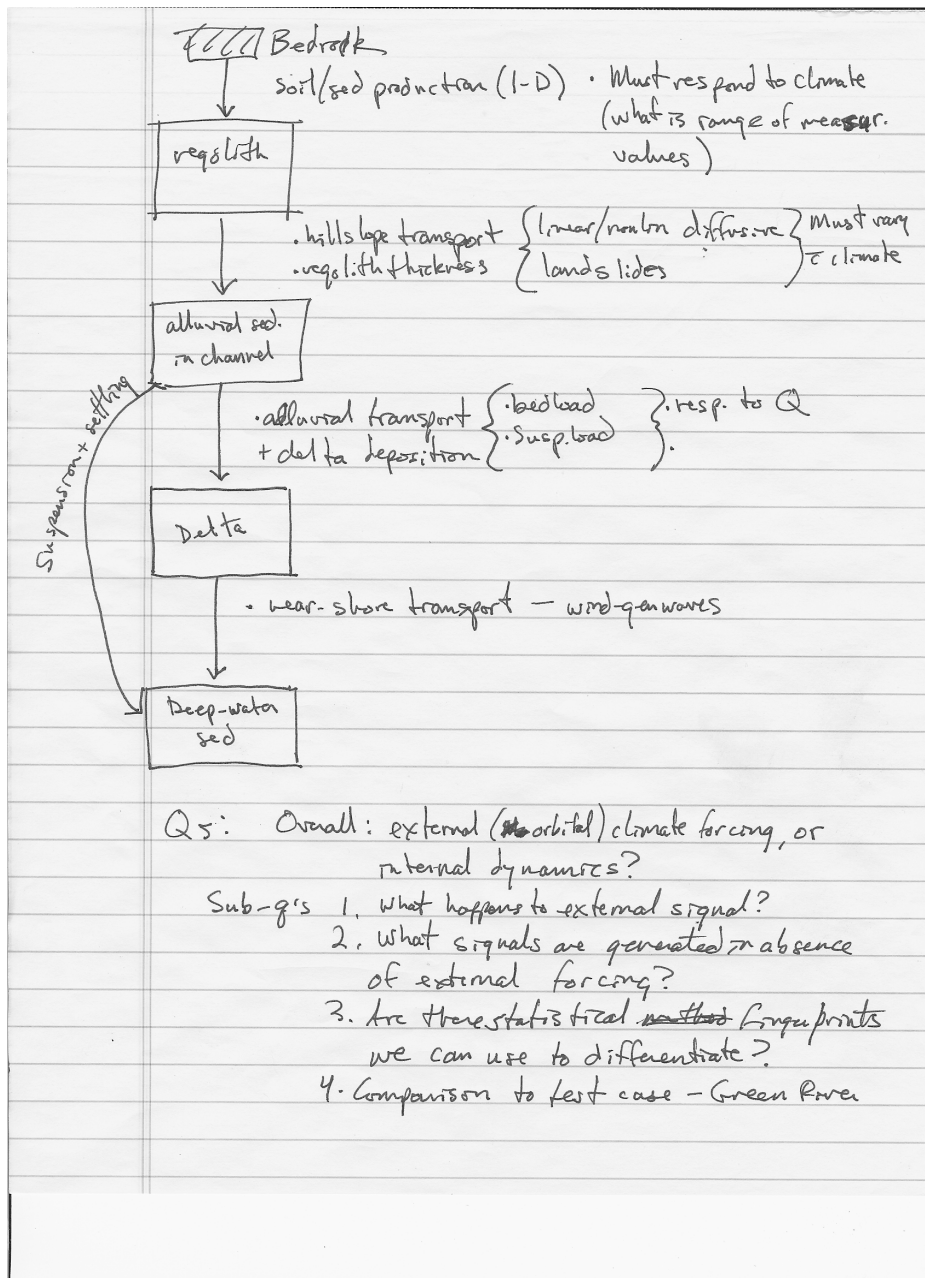 Bedrock
soil/sed production (1-D)
• Must respond to climate
(what is range of measur.
values)
regolith
• hillslope transport
• regolith thickness
linear/nonlin diffusive
landslides
Must vary
c̄ climate
alluvial sed.
in channel
Suspension + settling
• alluvial transport
+ delta deposition
• bedload
• Susp. load
• resp. to Q
•
Delta
• near-shore transport — wind-gen waves
Deep-water
sed
Qs: Overall: external (orbital) climate forcing, or
internal dynamics?
Sub-q's 1. What happens to external signal?
2. What signals are generated in absence
of external forcing?
3. Are there statistical fingerprints
we can use to differentiate?
4. Comparison to test case – Green River